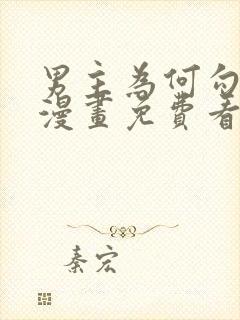 男主為何勾
漫畫免費看
秦宏